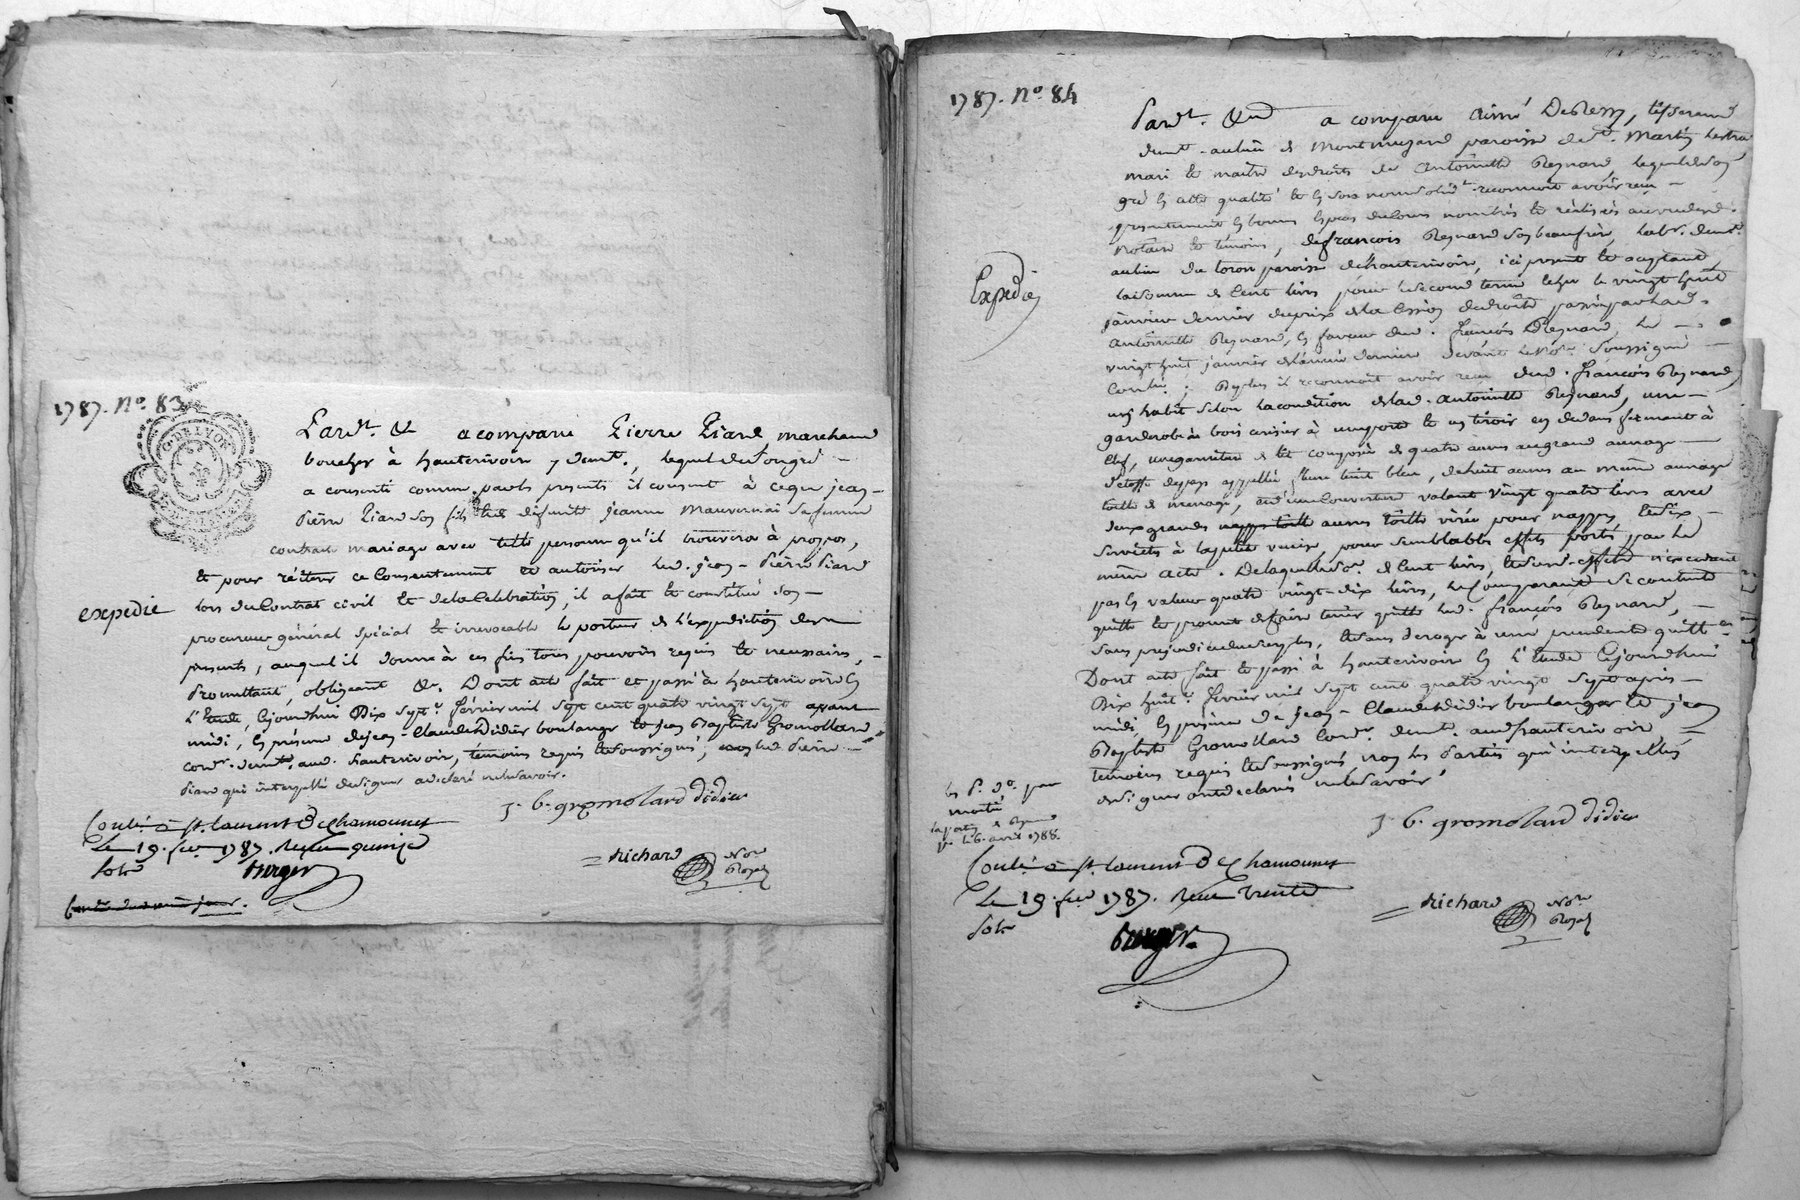 1787. No. 83
G. DE LYON
Pardt. &c a comparu Pierre Piard marchand
boucher à hauterivoire y demt., lequel de son gré
a consenti comme par les presentes il consent à ce que jean
Pierre Piard son fils et de defunte jeanne Mauvernai sa femme
contracte mariage avec telle personne qu'il trouvera à propos,
et pour réiterer ce Consentement et autoriser led. jean-Pierre Piard
lors du Contrat civil et de la Celebration, il a fait et constitué son
expedié
procureur général spécial et irrevocable le porteur de l'expedition des
presentes, auquel il donne à ces fins tous pouvoirs requis et necessaires,
Promettant, obligeant &c. Dont acte fait et passé à hauterivoire en
l'Etude, cejourdhui Dix sept. février mil sept cent quatre vingt sept avant
midi, en présence de jean-Claude Didier boulanger et jean Baptiste Gromollard
cordr. demt. aud. hauterivoire, témoins requis et soussignés, non led. Pierre
Piard qui interpellé de signer a declaré ne le savoir.
J. b. gromolard didier
Conlé. a st. laurent De Chamousset
Le 19. fer. 1787. Reçu quinze
sols
Berger
richard Nore Royal
1787. No. 84
Pardt. &c a comparu Aimé DeBessy, tisserand
demt. au lieu de Montmuzard paroisse de St. Martin Lestra
mari et maitre des droits de Antoinette Reynard, lequel de son
gré en cette qualité et en son nom reconnoit avoir reçu
presentement en bonnes especes de cours nombrées et réalisées au vu dud.
Notaire et témoins, de françois Reynard son beaufrère, labr. demt.
au lieu du toron paroisse d'hauterivoire, ici present et acceptant
la somme de Cent livres pour le second terme échu le vingt huit
Expedié
janvier dernier du prix de la Cession de droits passée par lad.
Antoinette Reynard, en faveur dud. françois Reynard, le
vingt huit janvier de l'année derniere devant le Nore. soussigné
Conlé; De plus il reconnoit avoir reçu dud. françois Reynard
un habit selon la condition de lad. Antoinette Reynard, une
garderobe de bois cerisier à une porte et un tiroir en dedans fermant à
clef, une garniture de lit composée de quatre aunes au grand aunage
d'étoffe de pays appellée teint bleu, de huit aunes au même aunage
toile de menage, une Couverture valant vingt quatre livres avec
deux grandes aunes toile pour nappes et six
serviettes à la petite venise, pour semblables effets portés par le
même acte. De laquelle so. de Cent livres, et desd. effets n'excedant
pas en valeur quatre vingt-dix livres, le Comparant se contente
quitte et promet de faire tenir quitte led. françois Reynard,
sans préjudice du surplus, et sans deroger à une precedente quittance
Dont acte fait et passé à hauterivoire en l'Etude cejourdhui
Dix huit. février mil sept cent quatre vingt sept après
midi, en présence de jean-Claude Didier boulanger et jean
Baptiste Gromollard Cordr. demt. aud. hauterivoire,
témoins requis et soussignés, non les Parties qui interpellées
de signer ont declaré ne le savoir.
J. b. gromolard didier
le 6. avril 1788.
Conlé. a st. laurent De Chamousset
Le 19. fer. 1787. Reçu trente
sols
Berger
richard Nore Royal